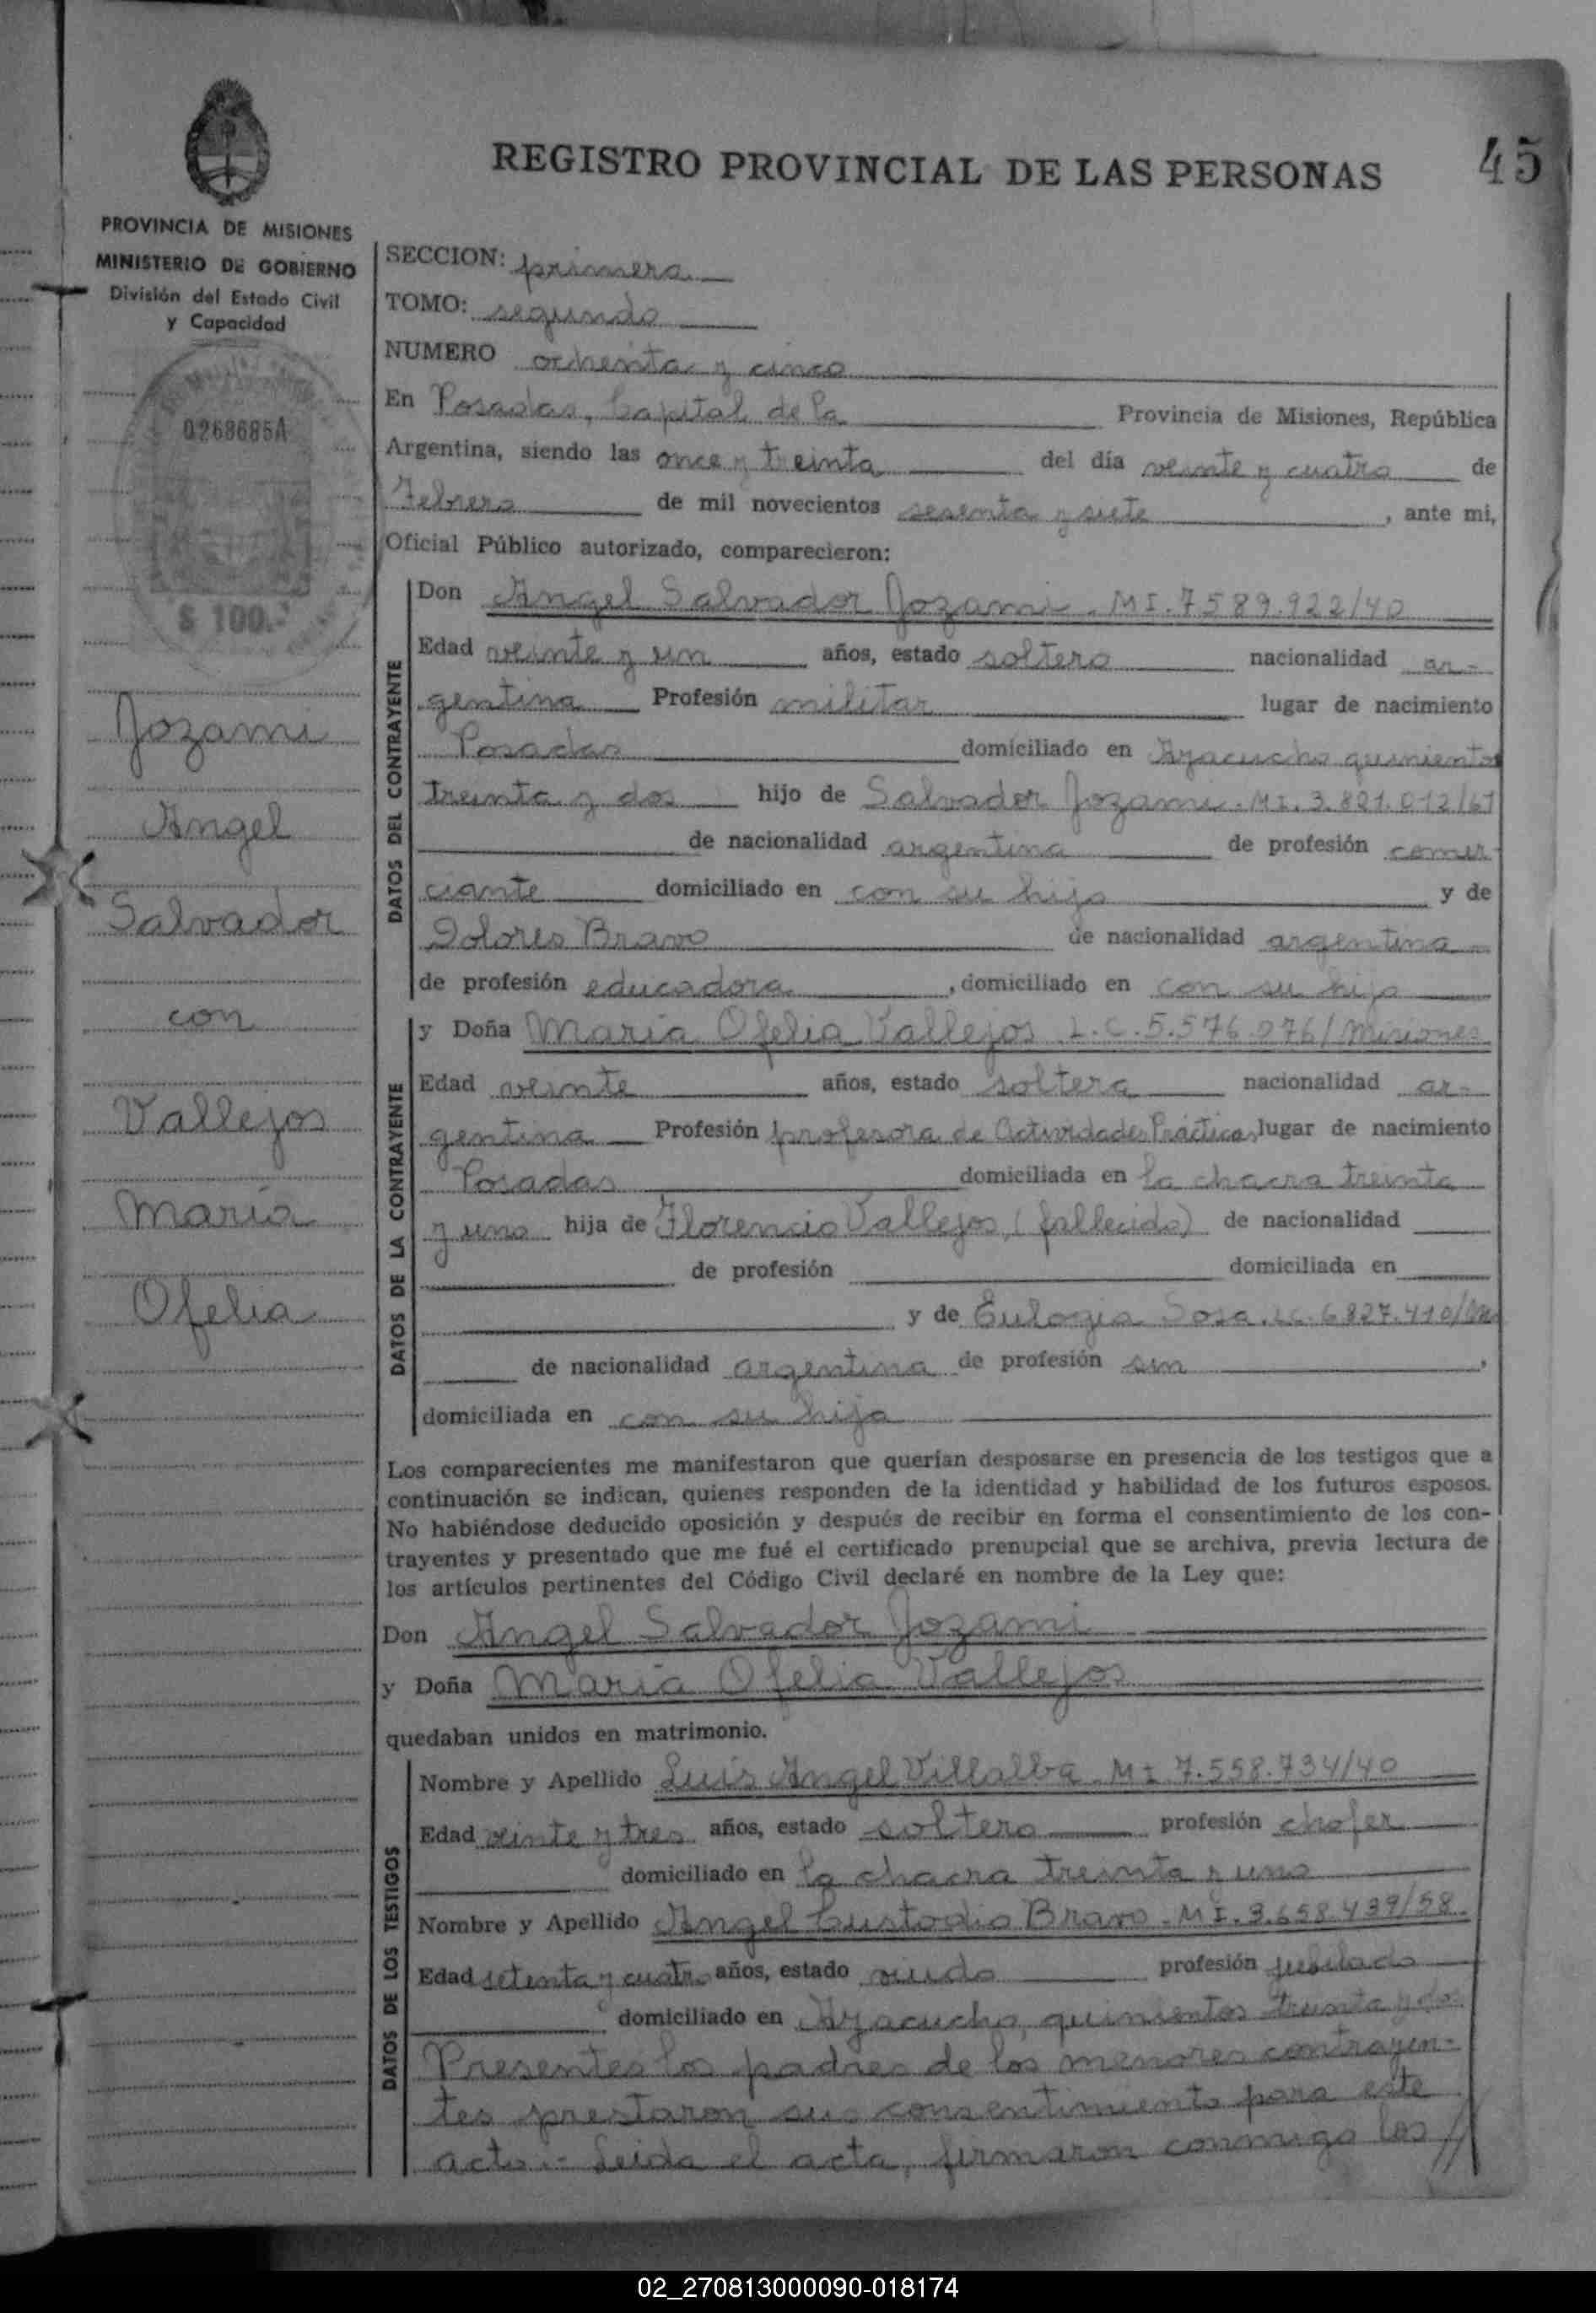 REGISTRO PROVINCIAL DE LAS PERSONAS
45
PROVINCIA DE MISIONES
MINISTERIO DE GOBIERNO
División del Estado Civil
y Capacidad
0268685A
$ 100.-
Jozami
Angel
Salvador
con
Vallejos
María
Ofelia
SECCION: primera
TOMO: segundo
NUMERO ochenta y cinco
En Posadas, Capital de la Provincia de Misiones, República
Argentina, siendo las once y treinta del día veinte y cuatro de
Febrero de mil novecientos sesenta y siete, ante mi,
Oficial Público autorizado, comparecieron:
DATOS DEL CONTRAYENTE
Don Angel Salvador Jozami. MI. 7589.922/40
Edad veinte y un años, estado soltero nacionalidad ar-
gentina Profesión militar lugar de nacimiento
Posadas domiciliado en Ayacucho quinientos
treinta y dos hijo de Salvador Jozami. MI. 3.821.012/61
de nacionalidad argentina de profesión comer-
ciante domiciliado en con su hijo y de
Dolores Bravo de nacionalidad argentina
de profesión educadora, domiciliado en con su hijo
DATOS DE LA CONTRAYENTE
y Doña María Ofelia Vallejos L.C. 5.576.076/Misiones
Edad veinte años, estado soltera nacionalidad ar-
gentina Profesión profesora de Actividades Prácticas lugar de nacimiento
Posadas domiciliada en la chacra treinta
y uno hija de Florencio Vallejos, (fallecido) de nacionalidad
de profesión domiciliada en
y de Eulogia Sosa. LC. 6827.410/
de nacionalidad argentina de profesión sin,
domiciliada en con su hija
Los comparecientes me manifestaron que querían desposarse en presencia de los testigos que a
continuación se indican, quienes responden de la identidad y habilidad de los futuros esposos.
No habiéndose deducido oposición y después de recibir en forma el consentimiento de los con-
trayentes y presentado que me fué el certificado prenupcial que se archiva, previa lectura de
los artículos pertinentes del Código Civil declaré en nombre de la Ley que:
Don Angel Salvador Jozami
y Doña María Ofelia Vallejos
quedaban unidos en matrimonio.
DATOS DE LOS TESTIGOS
Nombre y Apellido Luis Angel Villalba. MI. 7.558.734/40
Edad veinte y tres años, estado soltero profesión chofer
domiciliado en la chacra treinta y uno
Nombre y Apellido Angel Custodio Bravo. MI. 3.658.439/58.
Edad setenta y cuatro años, estado viudo profesión jubilado
domiciliado en Ayacucho, quinientos treinta y dos
Presentes los padres de los menores contrayen-
tes prestaron su consentimiento para este
acto.- Leida el acta, firmaron conmigo los //
02_270813000090-018174